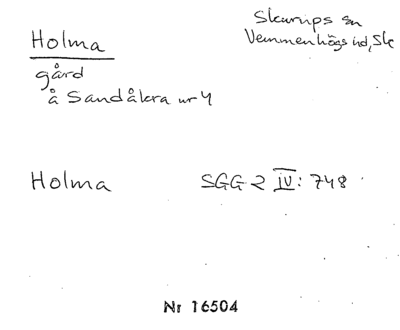 Holma
gård
å Sandåkra nr 4
Skurups sn
Vemmenhögs hd, Sk
Holma SGG 2 IV: 748
Nr 16504